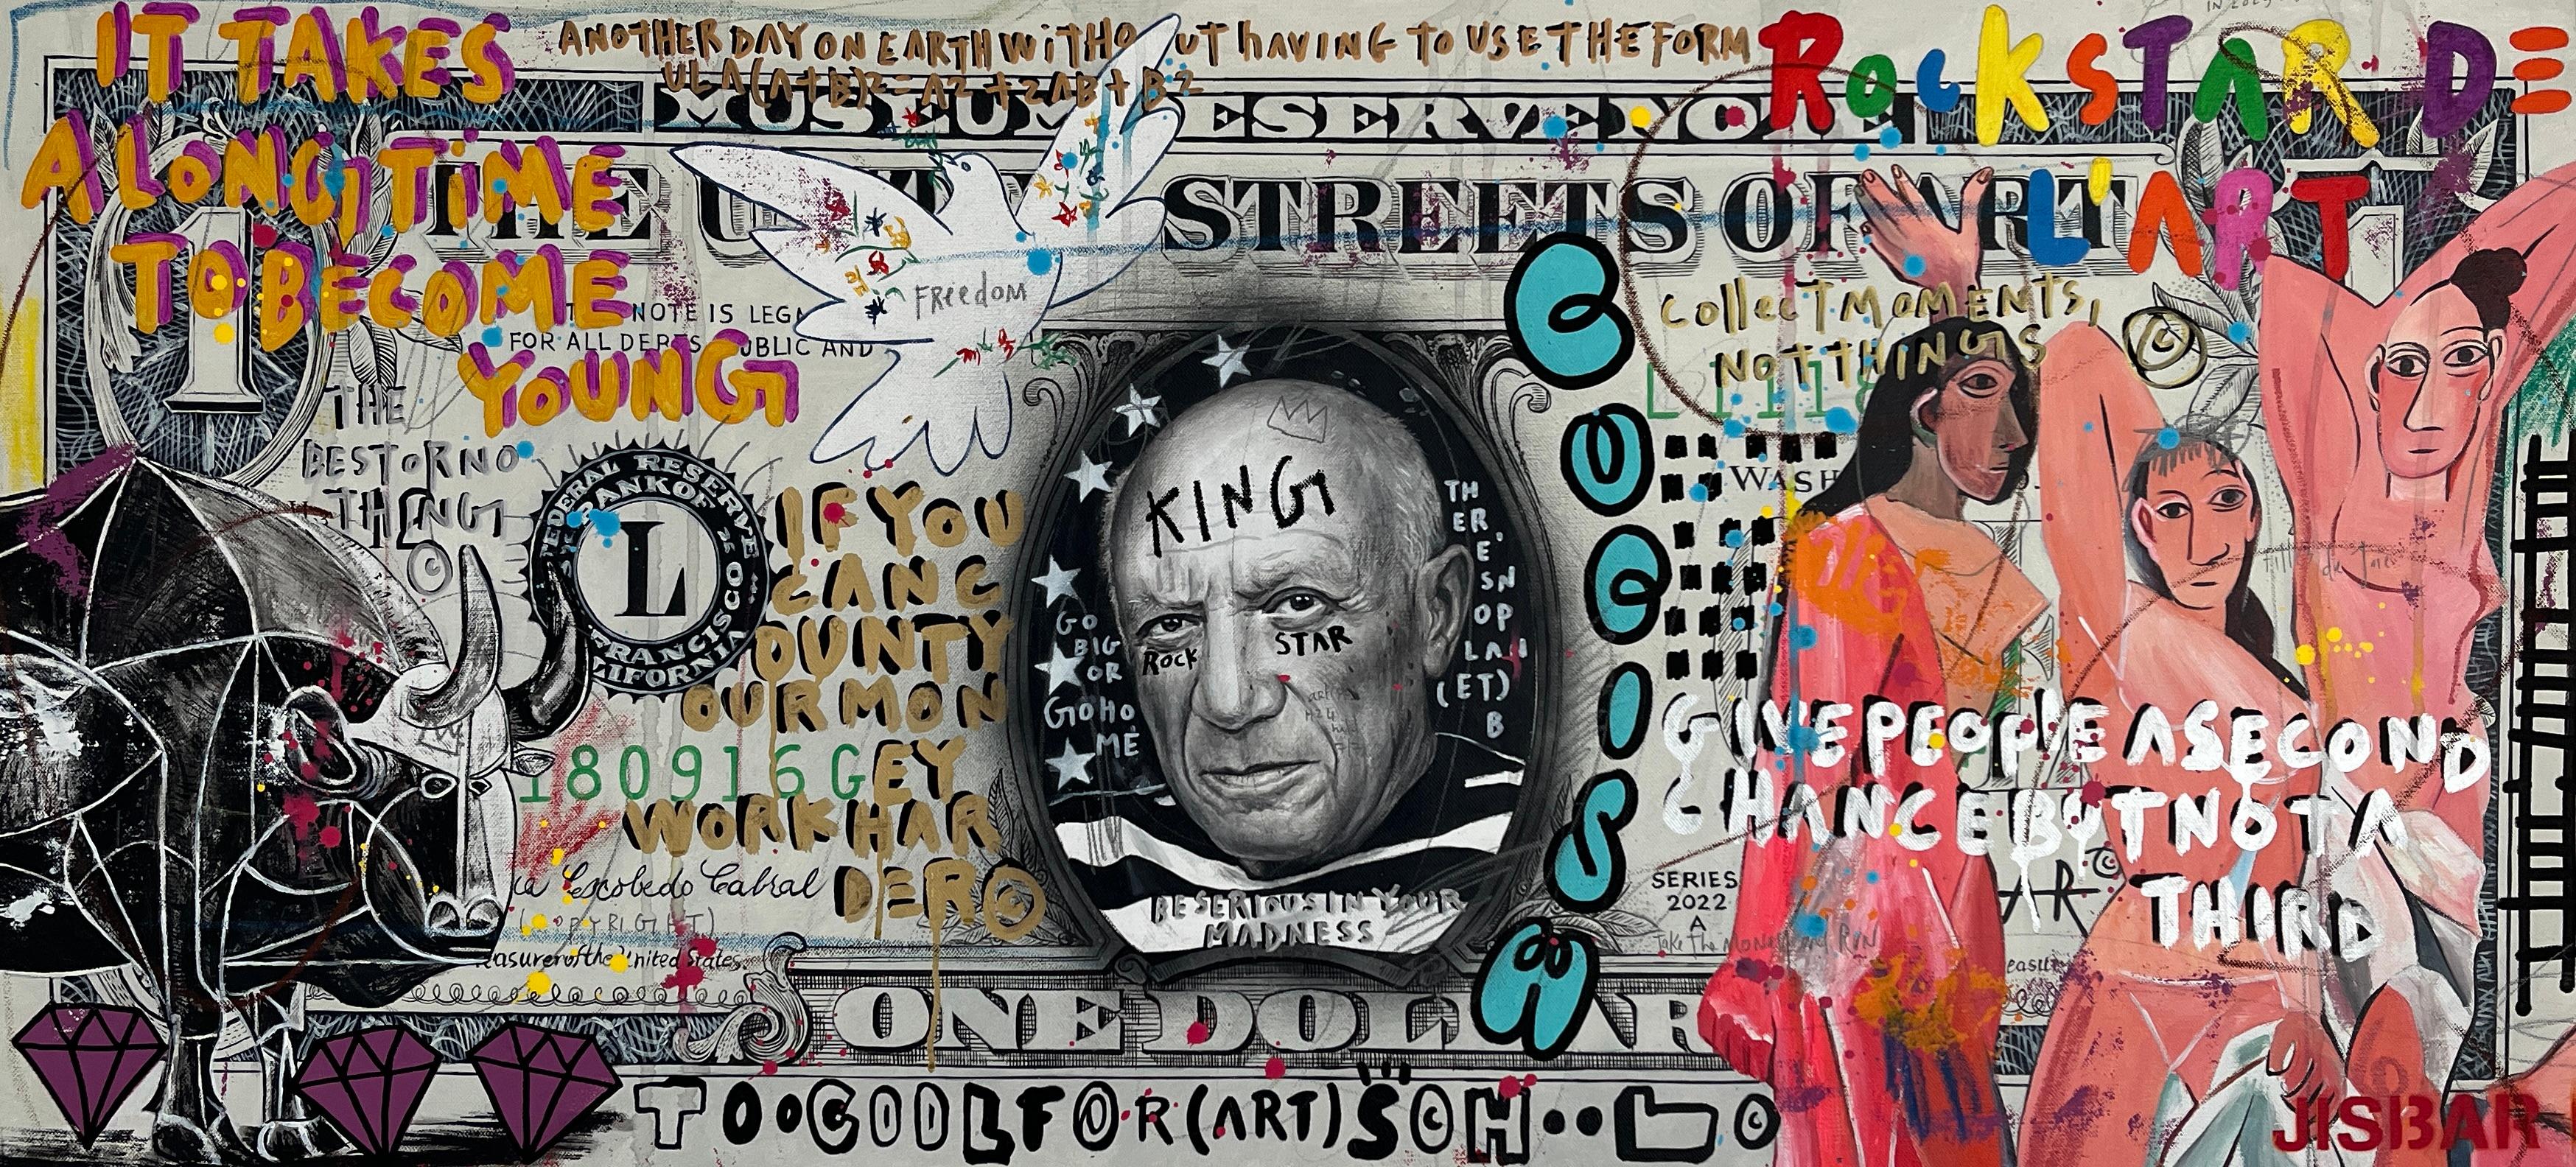 IT TAKES
A LONG TIME
TO BECOME
YOUNG
ANOTHER DAY ON EARTH WITHOUT HAVING TO USE THE FORM
ULA (A+B)2 = A2 + 2AB + B2
ROCKSTAR DE
L'ART
MUSEUM RESERVE NOTE
THE STREETS OF ART
Freedom
NOTE IS LEGA
FOR ALL DEBTS UBLIC AND
1
1
Collect MOMENTS,
NOT THINGS
©
L1118
THE
BEST OR NO
THING
©
FEDERAL RESERVE BANK OF
SAN FRANCISCO
CALIFORNIA
L
IF YOU
CAN C
OUNT Y
OUR MON
EY
WORK HAR
DER ©
180916G
KING
ROCK
STAR
GO
BIG
OR
GO HO
ME
TH
ER'
E'
SN
OP
LA
(ET)
B
BE SERIOUS IN YOUR
MADNESS
WASH
GIVE PEOPLE A SECOND
CHANCE BUT NOT A
THIRD
SERIES
2022
A
Take The MONEY AND RUN
ca Escobedo Cabral
(COPYRIGHT)
easurer of the United States.
easu
ONE DOLLAR
TOO COOL FOR (ART) SCH
JISBAR